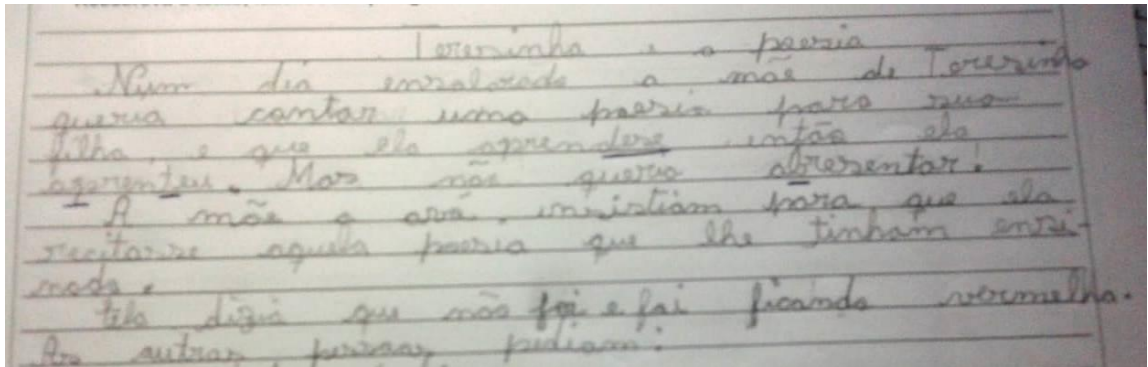 Teresinha e a poesia
Num dia ensolarado a mãe de Teresinha
queria cantar uma poesia para sua
filha, e que ela aprendese, então ela
aprenteu. Mas não queria abresentar!
A mãe a avó, insistiam para que ela
recitasse aquela poesia que lhe tinham ensi-
nado.
Ela dizia que não foi e foi ficando vermelha.
As outras pessoas, pediam: